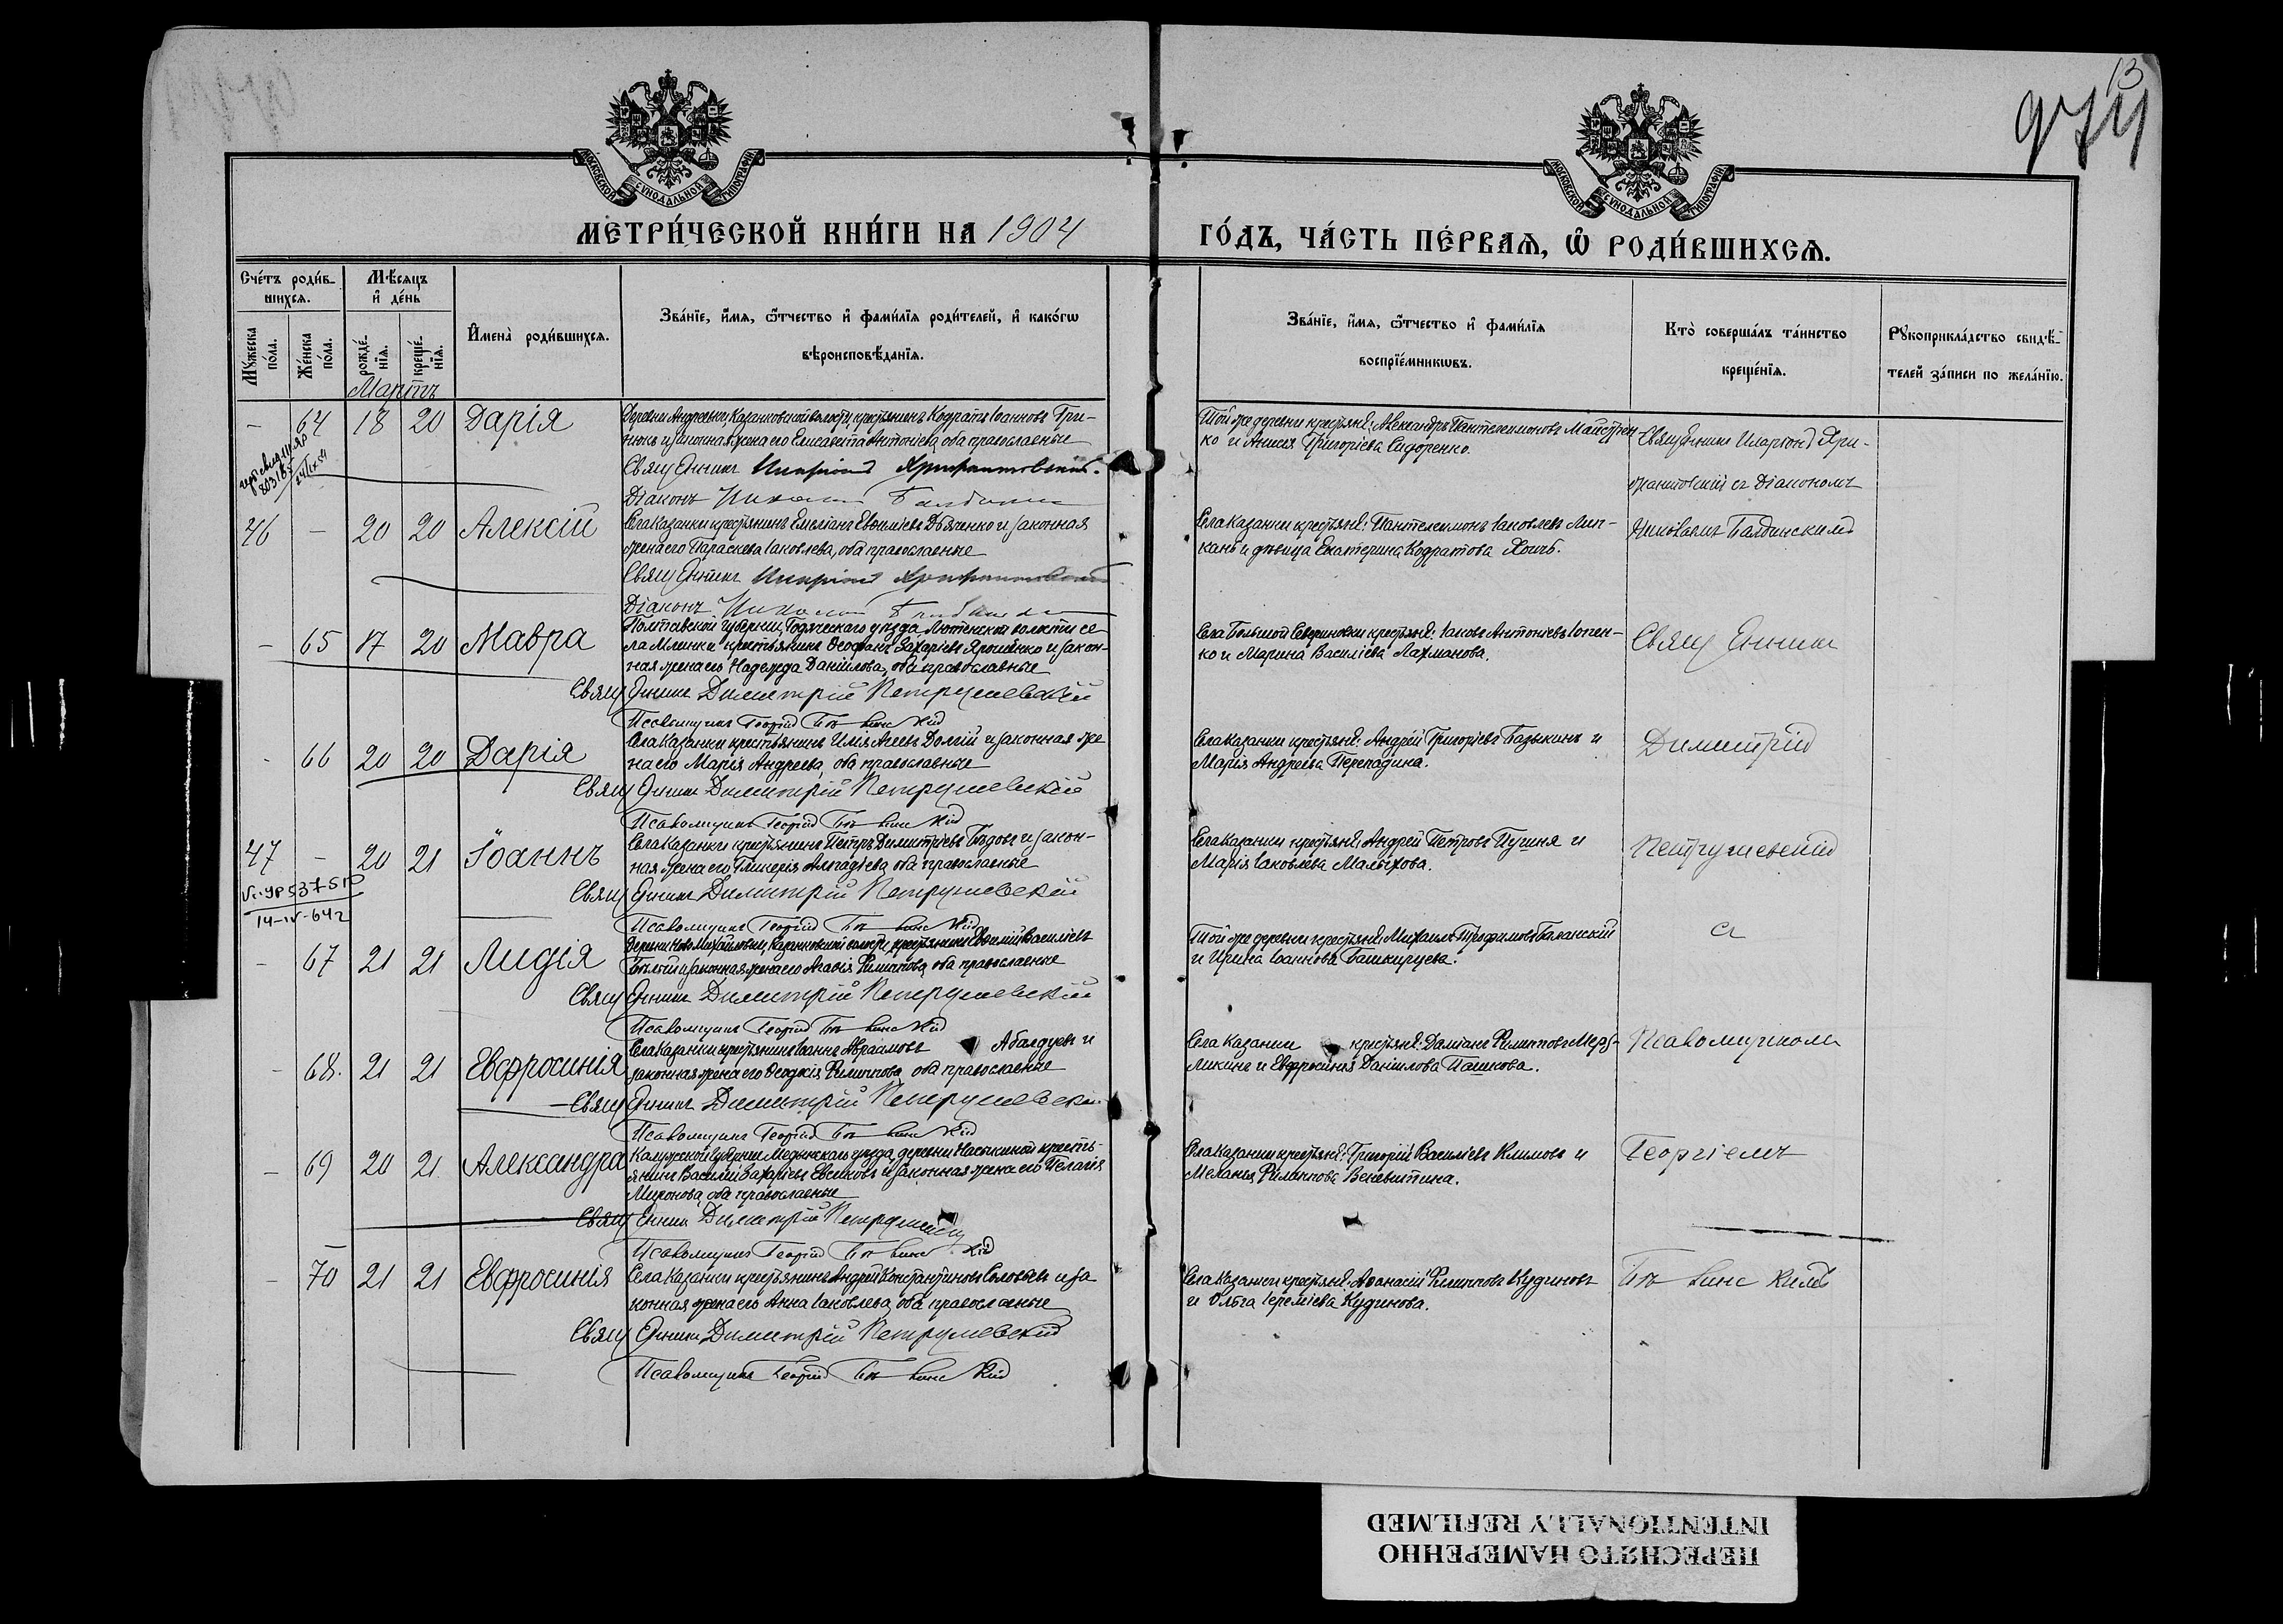 13
974
МОСКОВСКОЙ СѴНОДАЛЬНОЙ ТИПОГРАФІИ
МОСКОВСКОЙ СѴНОДАЛЬНОЙ ТИПОГРАФІИ
МЕТРИ́ЧЕСКОЙ КНИ́ГИ НА 1904
ГО́ДЪ, ЧА́СТЬ ПЕ́РВАѦ, Ѽ РОДИ́ВШИХСѦ.
Сче́тъ роди́в-
шихсѧ.
Мꙋ́жеска
по́ла.
Же́нска
по́ла.
Мѣ́сѧцъ
и҆ де́нь
рожде́-
нїѧ.
креще́-
нїѧ.
И҆мена̀ роди́вшихсѧ.
Зва́нїе, и҆́мѧ, ѻ҆́тчество и҆ фами́лїѧ роди́телей, и҆ како́гѡ
вѣроисповѣ́данїѧ.
Зва́нїе, и҆́мѧ, ѻ҆́тчество и҆ фами́лїѧ
воспрїе́мникѡвъ.
Кто̀ соверша́лъ та́инство
креще́нїѧ.
Рꙋкоприкла́дство свидѣ́-
телей за́писи по жела́нїю.
Мартъ
– 64 18 20 Дарія
Деревни Андреевки, Казанковской волости, крестьянинъ Кодратъ Іоанновъ Гри-
нюкъ и законная жена его Елисавета Антоніева, оба православные
Священникъ Иларіонъ
Діаконъ Николай
Той же деревни крестьяне: Александръ Пантелеимоновъ Майстрен
ко и Анисія Григоріева Сидоренко.
Священникъ Иларіонъ Хри-
съ Діакономъ
46 – 20 20 Алексій
Села Казанки крестьянинъ Емеліанъ Евфиміевъ Дьяченко и законная
жена его Параскева Іаковлева, оба православные
Священникъ Иларіонъ
Діаконъ Николай
Села Казанки крестьяне: Пантелеимонъ Іаковлевъ Лип-
канъ и дѣвица Екатерина Кодратова Хоичъ.
Николаемъ Балдинскимъ
– 65 17 20 Мавра
Полтавской губерніи, Гадячскаго уѣзда, Лютенской волости се-
ла Млинки крестьянинъ Ѳеофанъ Захаріевъ Ярошенко и закон-
ная жена его Надежда Даніилова, оба православные
Священникъ Димитрій Петрушевскій
Псаломщикъ Георгій
Села Большой Севериновки крестьяне: Іаковъ Антоніевъ Іопен-
ко и Марина Василіева Лахманова.
Священникъ
- 66 20 20 Дарія
Села Казанки крестьянинъ Илія Агеевъ Долгій и законная же
на его Марія Андреева, оба православные
Священникъ Димитрій Петрушевскій
Псаломщикъ Георгій
Села Казанки крестьяне: Андрей Григоріевъ Базыкинъ и
Марія Андреева Перепадина.
Димитрій
47 – 20 21 Іоаннъ
537510
14-IV-64г
Села Казанки крестьянинъ Петръ Димитріевъ Бѣдовъ и закон-
ная жена его Гликерія Аркадіева, оба православные
Священникъ Димитрій Петрушевскій
Псаломщикъ Георгій
Села Казанки крестьяне: Андрей Петровъ Пугиня и
Марія Іаковлева Малыхова.
Петрушевскій
– 67 21 21 Лидія
Деревни Ново-Михайловки, Казанковской волости, крестьянинъ Евфимій Василіевъ
Бѣлый и законная жена его Агафія Филиппова, оба православные
Священникъ Димитрій Петрушевскій
Псаломщикъ Георгій
Той же деревни крестьяне: Михаилъ Трофимовъ Базанскій
и Ирина Іоаннова Башкирцева.
съ
– 68. 21 21 Евфросинія
Села Казанки крестьянинъ Іоаннъ Авраамовъ Абалдуевъ и
законная жена его Ѳеодосія Филиппова, оба православные
Священникъ Димитрій Петрушевскій
Псаломщикъ Георгій
Села Казанки крестьяне: Даміанъ Филипповъ Мерз-
ликинъ и Евфросинія Даніилова Пашкова.
Псаломщикомъ
– 69 20 21 Александра
Калужской губерніи Медынскаго уѣзда, деревни крестья-
янинъ Василій Захаріевъ Евсиковъ и законная жена его Пелагія
Миронова, оба православные
Священникъ Димитрій Петрушевскій
Псаломщикъ Георгій
Села Казанки крестьяне: Григорій Василіевъ Климовъ и
Меланія Филиппова Веневитина.
Георгіемъ
– 70 21 21 Евфросинія
Села Казанки крестьянинъ Андрей Константиновъ Соловьевъ и за
конная жена его Анна Іаковлева, оба православные
Священникъ Димитрій Петрушевскій
Псаломщикъ Георгій
Села Казанки крестьяне: Аѳанасій Филипповъ Кудиновъ
и Ольга Іереміева Кудинова.
ПЕРЕСНЯТО НАМЕРЕННО
INTENTIONALLY REFILMED